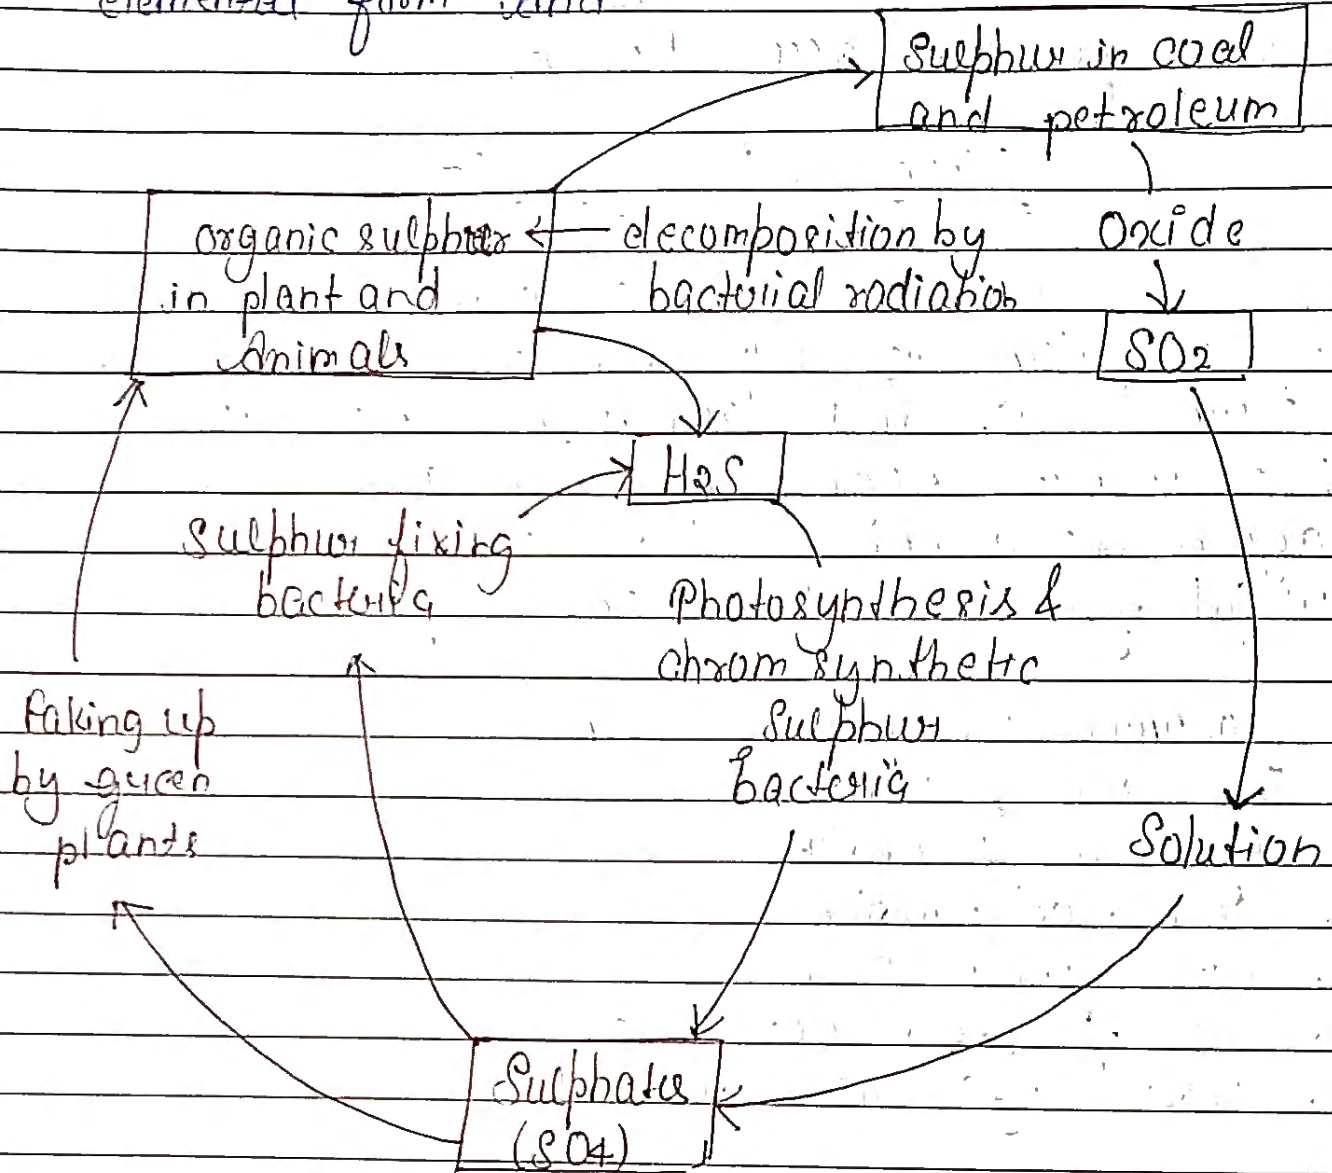 elemental from land
Sulphur in coal
and petroleum
organic sulphur
in plant and
Animals
decomposition by
bacterial radiation
Oxide
SO2
H2S
Sulphur fixing
bacteria
Photosynthesis &
chrom synthetic
Sulphur
bacteria
Taking up
by green
plants
Solution
Sulphates
(SO4)